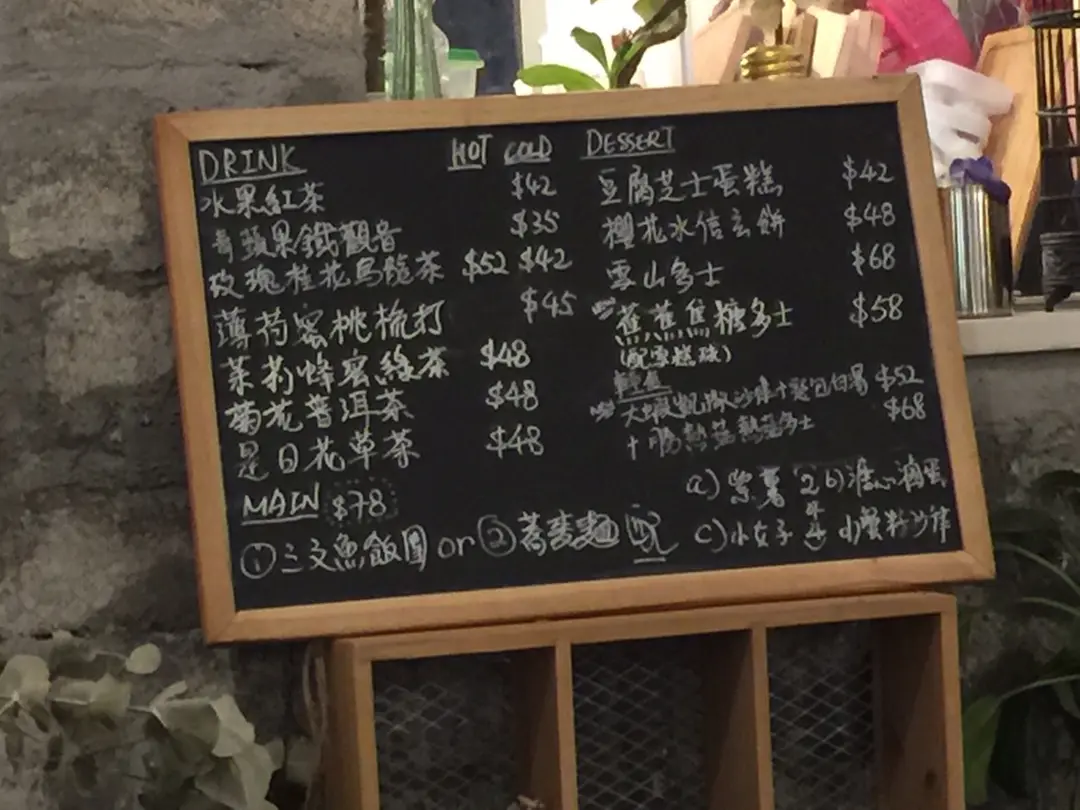 DRINK HOT COLD
水果紅茶 $42
青蘋果鐵觀音 $35
玫瑰桂花烏龍茶 $52 $42
薄荷蜜桃梳打 $45
茉莉蜂蜜綠茶 $48
菊花普洱茶 $48
是日花草茶 $48
MAIN $78
① 三文魚飯團 or ② 蕎麥麵 配
DESSERT
豆腐芝士蛋糕 $42
櫻花水信玄餅 $48
雪山多士 $68
蕉蕉焦糖多士 $58
(配雪糕球)
輕食
大蝦凱撒沙律 $52
多士 $68
a) 紫薯 b) 溏心滷蛋
c) 小女子 沙律